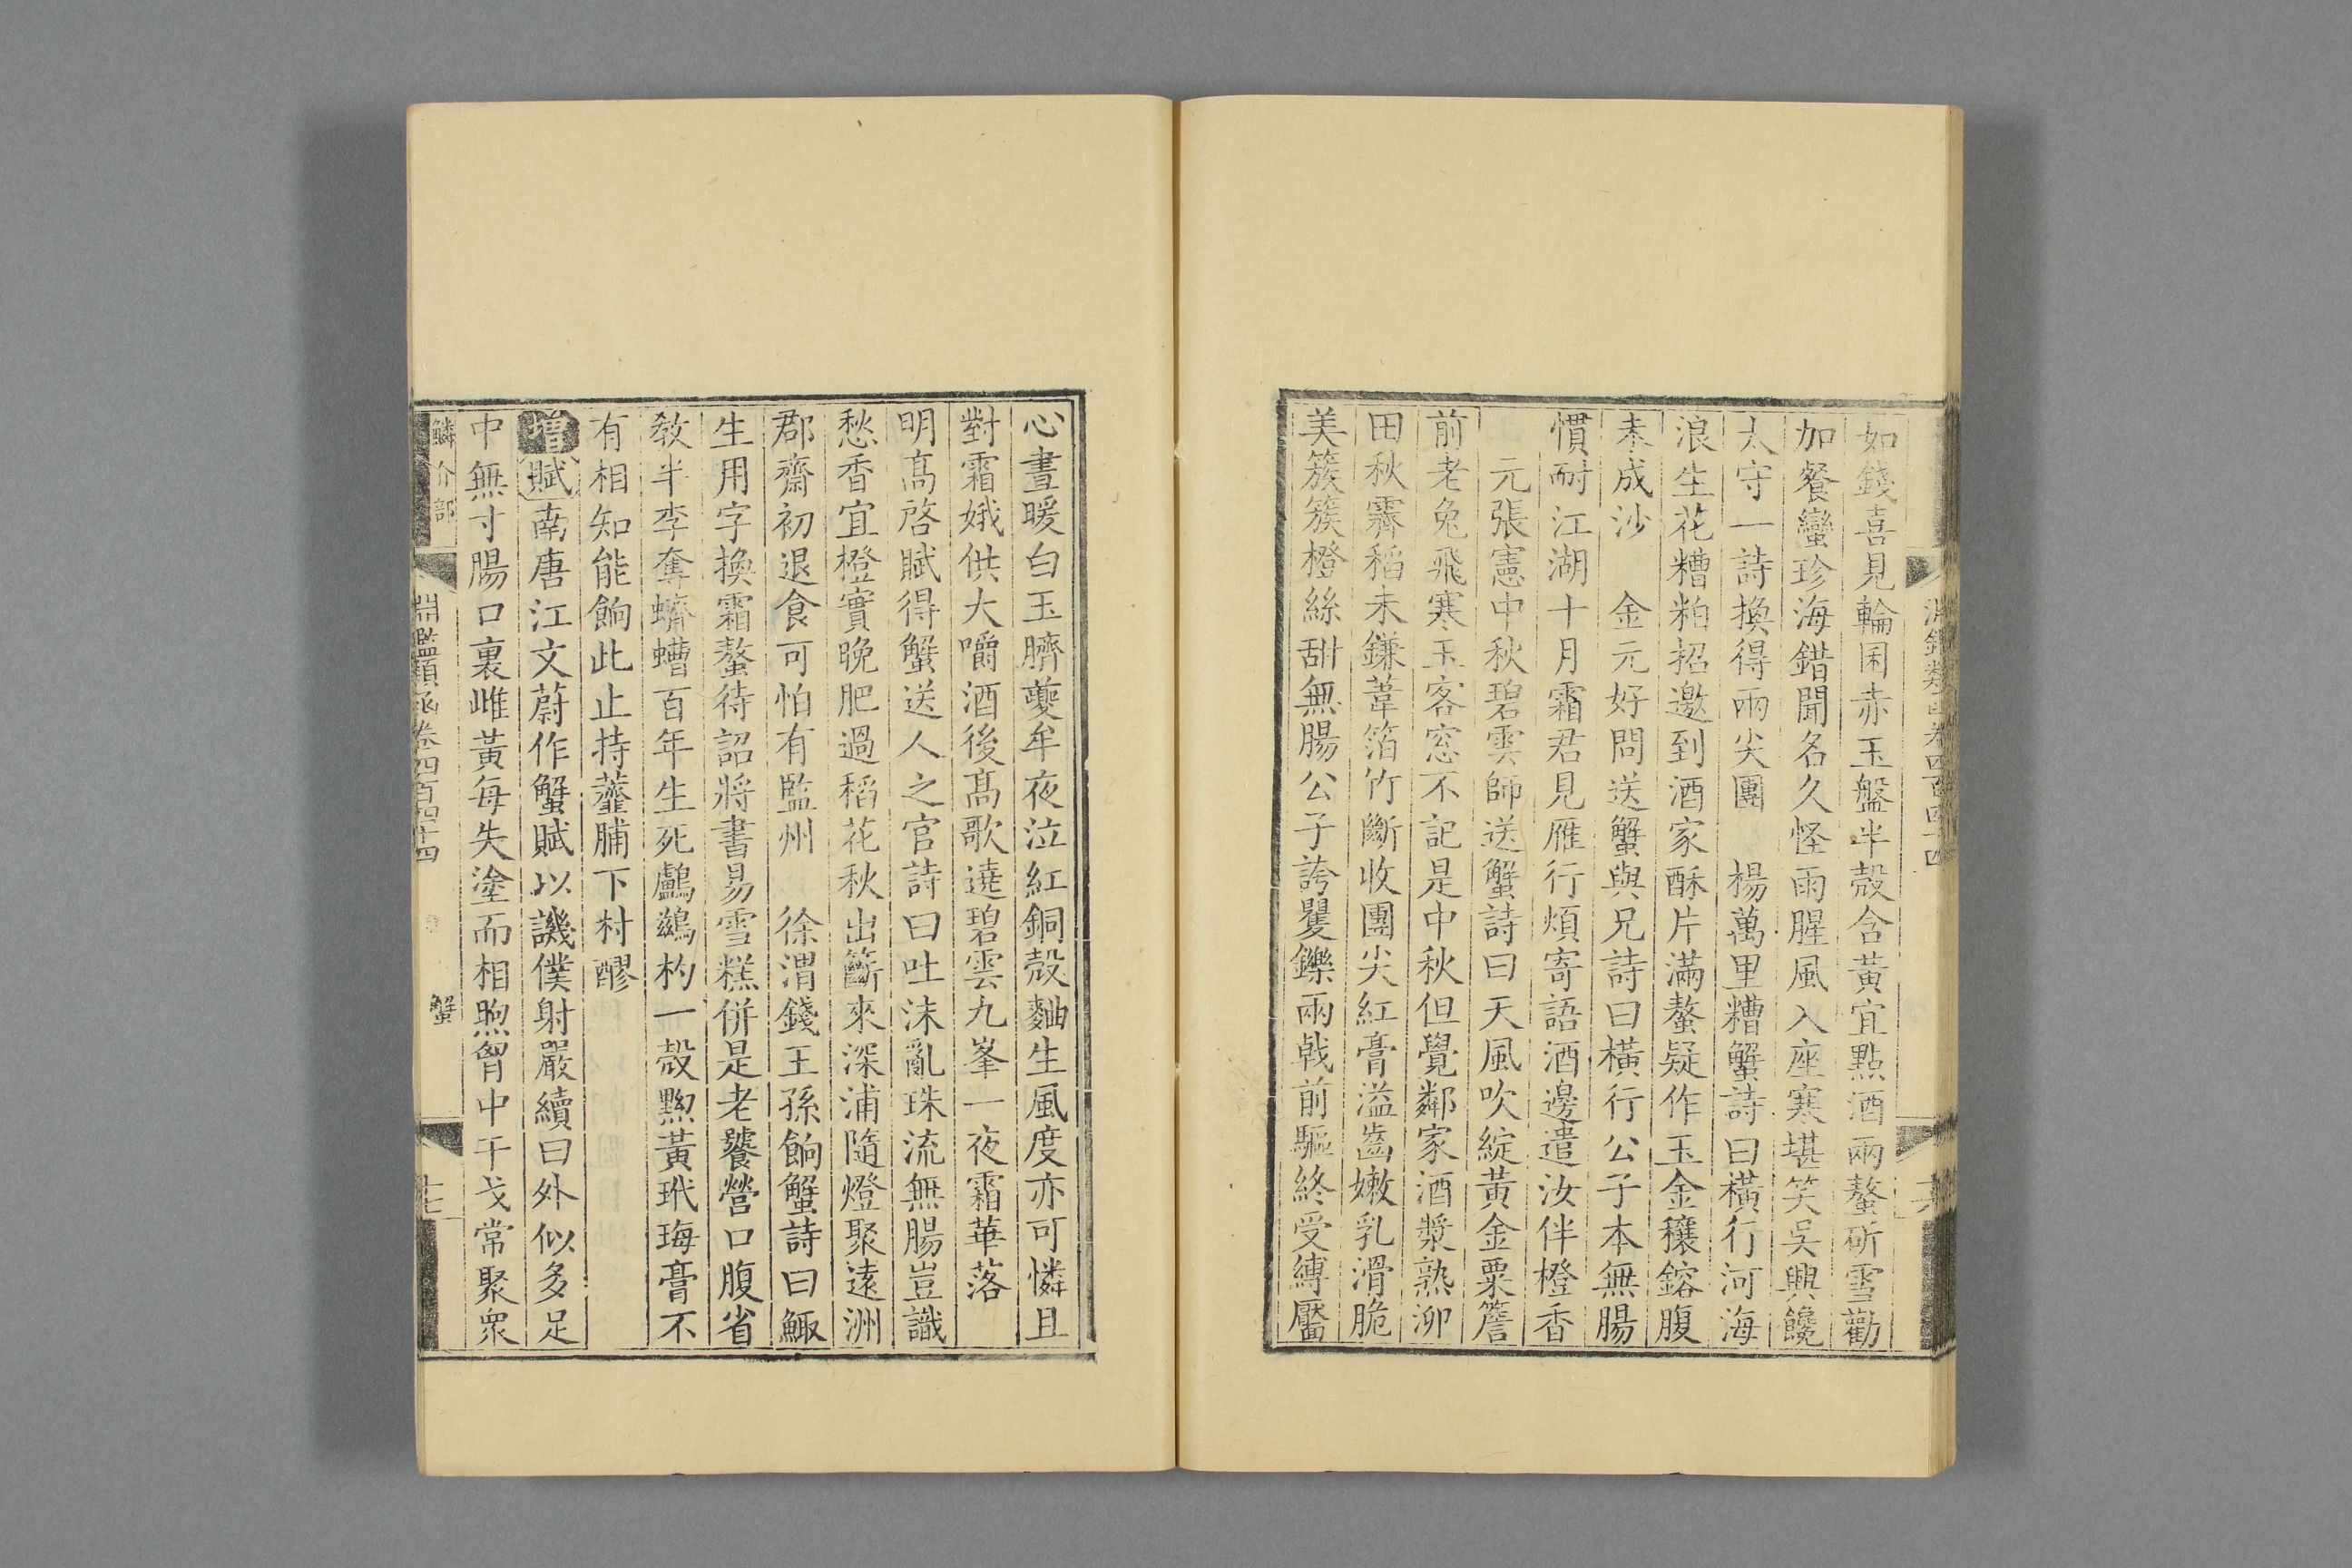 如錢喜見輪囷赤玉盤半殼含黃宜點酒兩螯斫雪勸
加餐蠻珍海錯聞名久怪雨腥風入座寒堪笑吳興饞
太守一詩換得兩尖團　楊萬里糟蟹詩曰橫行河海
浪生花糟粕招邀到酒家酥片滿螯疑作玉金穰鎔腹
未成沙　金元好問送蟹與兄詩曰橫行公子本無腸
慣耐江湖十月霜君見雁行煩寄語酒邊遣汝伴橙香
元張憲中秋碧雲師送蟹詩曰天風吹綻黃金粟簷
前老兔飛寒玉客窓不記是中秋但覺鄰家酒漿熟泖
田秋霽稻未鎌葦箔竹斷收團尖紅膏溢齒嫩乳滑脆
美簇簇橙絲甜無腸公子誇矍鑠兩戟前驅終受縛靨
心晝暖白玉臍夔牟夜泣紅銅殼麯生風度亦可憐且
對霜娥供大嚼酒後高歌遶碧雲九峯一夜霜華落
明高啓賦得蟹送人之官詩曰吐沫亂珠流無腸豈識
愁香宜橙實晚肥過稻花秋出籪來深浦隨燈聚遠洲
郡齋初退食可怕有監州　徐渭錢王孫餉蟹詩曰鯫
生用字換霜螯待詔將書易雪糕併是老饕營口腹省
教半李奪蠐螬百年生死鸕鷀杓一殼黦黃玳瑁膏不
有相知能餉此止持虀脯下村醪
增賦南唐江文蔚作蟹賦以譏僕射嚴續曰外似多足
中無寸腸口裏雌黃每失塗而相煦胷中干戈常聚眾
鱗介部
淵鑑類函卷四百四十四
蟹
十七